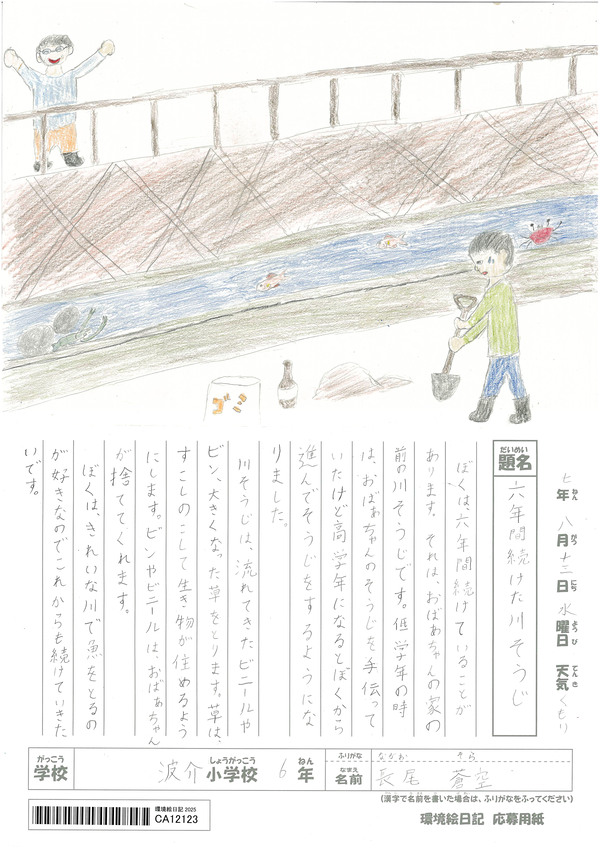 ゴミ
七年 八月 十三日 水曜日 天気 くもり
ねん がつ にち ようび てんき
だいめい
題名
六年間続けた川そうじ
ぼくは、六年間続けていることが
あります。それは、おばあちゃんの家の
前の川そうじです。低学年の時
は、おばあちゃんのそうじを手伝って
いたけど高学年になるとぼくから
進んでそうじをするようにな
りました。
川そうじは、流れてきたビニールや
ビン、大きくなった草をとります。草は、
すこしのこして生き物が住めるよう
にします。ビンやビニールは、おばあちゃん
が捨ててくれます。
ぼくは、きれいな川で魚をとるの
が好きなのでこれからも続けていきた
いです。
がっこう
学校
波介
しょうがっこう
小学校
6
ねん
年
ふりがな
ながお そら
なまえ
名前
長尾 蒼空
(漢字で名前を書いた場合は、ふりがなをふってください)
環境絵日記 2025
CA12123
環境絵日記 応募用紙